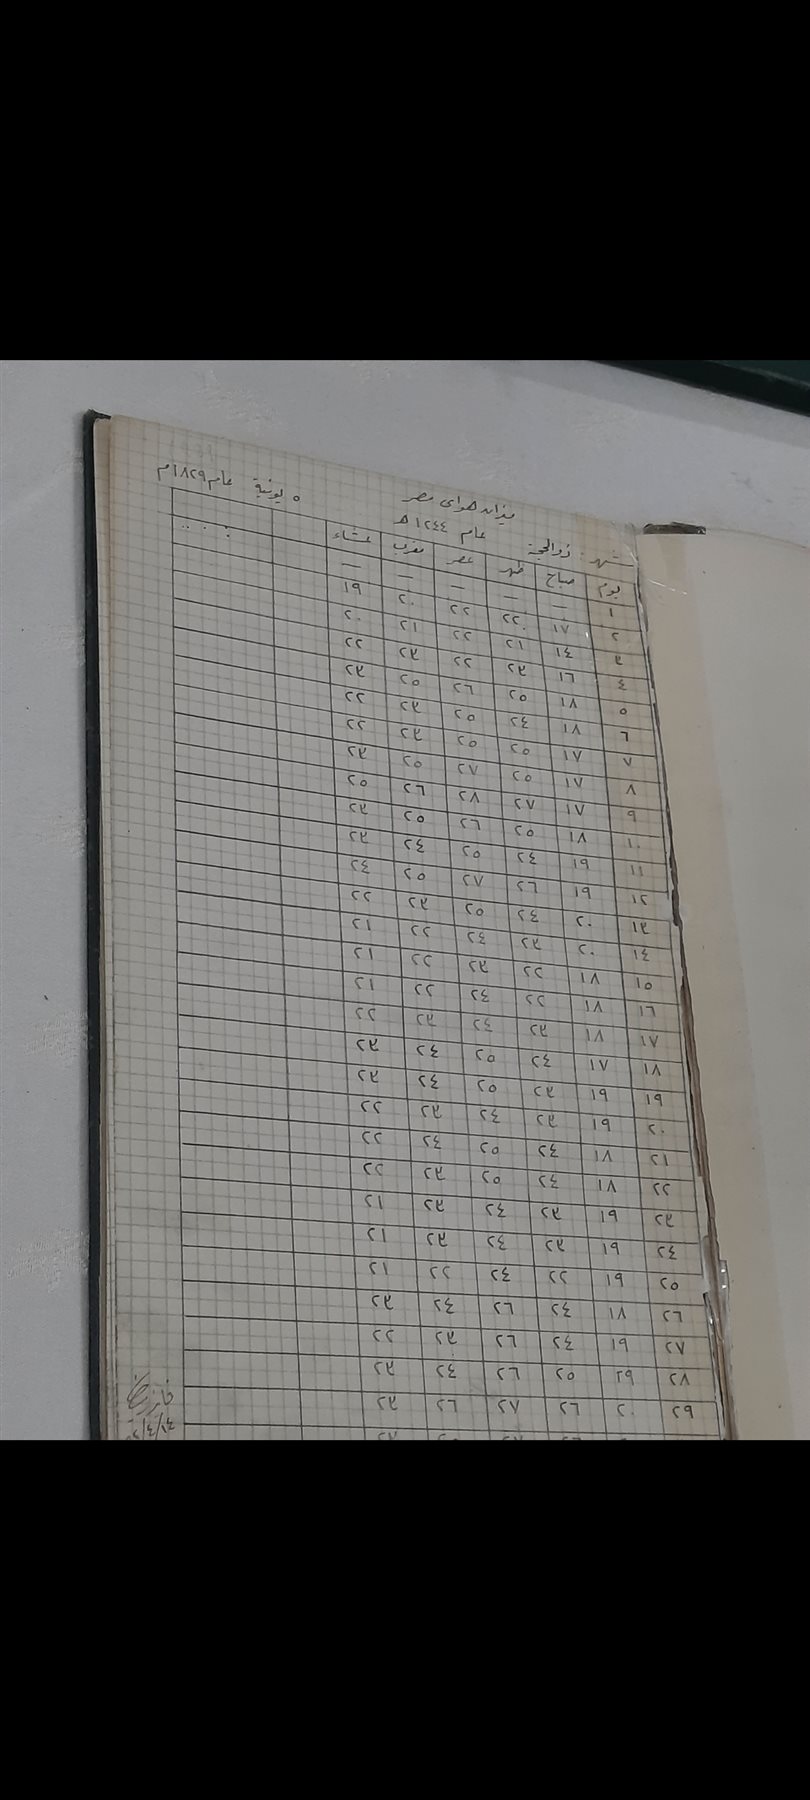 ميزان هواى مصر
٥ يونية عام ١٨٢٩م
شهر : ذو الحجة عام ١٢٤٤ هـ
يوم صباح ظهر عصر مغرب عشاء
١ — — — — —
٢ ١٨ ٢٢ ٢٢ ٢٠ ١٩
٣ ١٤ ٢١ ٢٢ ٢١ ٢٠
٤ ١٦ ٢٣ ٢٢ ٢٣ ٢٢
٥ ١٨ ٢٥ ٢٦ ٢٥ ٢٣
٦ ١٨ ٢٤ ٢٥ ٢٣ ٢٢
٧ ١٨ ٢٥ ٢٥ ٢٣ ٢٢
٨ ١٨ ٢٥ ٢٧ ٢٥ ٢٣
٩ ١٨ ٢٧ ٢٨ ٢٦ ٢٥
١٠ ١٨ ٢٥ ٢٦ ٢٥ ٢٣
١١ ١٩ ٢٤ ٢٥ ٢٤ ٢٣
١٢ ١٩ ٢٦ ٢٧ ٢٥ ٢٤
١٣ ٢٠ ٢٤ ٢٥ ٢٣ ٢٢
١٤ ٢٠ ٢٣ ٢٤ ٢٢ ٢١
١٥ ١٨ ٢٢ ٢٣ ٢٢ ٢١
١٦ ١٨ ٢٢ ٢٤ ٢٢ ٢١
١٧ ١٨ ٢٣ ٢٤ ٢٣ ٢٢
١٨ ١٧ ٢٤ ٢٥ ٢٤ ٢٣
١٩ ١٩ ٢٣ ٢٥ ٢٤ ٢٣
٢٠ ١٩ ٢٣ ٢٤ ٢٣ ٢٢
٢١ ١٨ ٢٤ ٢٥ ٢٤ ٢٢
٢٢ ١٨ ٢٤ ٢٥ ٢٣ ٢٢
٢٣ ١٩ ٢٣ ٢٤ ٢٣ ٢١
٢٤ ١٩ ٢٣ ٢٤ ٢٣ ٢١
٢٥ ١٩ ٢٢ ٢٤ ٢٢ ٢١
٢٦ ١٨ ٢٤ ٢٦ ٢٤ ٢٣
٢٧ ١٩ ٢٤ ٢٦ ٢٣ ٢٢
٢٨ ١٩ ٢٥ ٢٦ ٢٤ ٢٣
٢٩ ٢٠ ٢٦ ٢٧ ٢٦ ٢٣